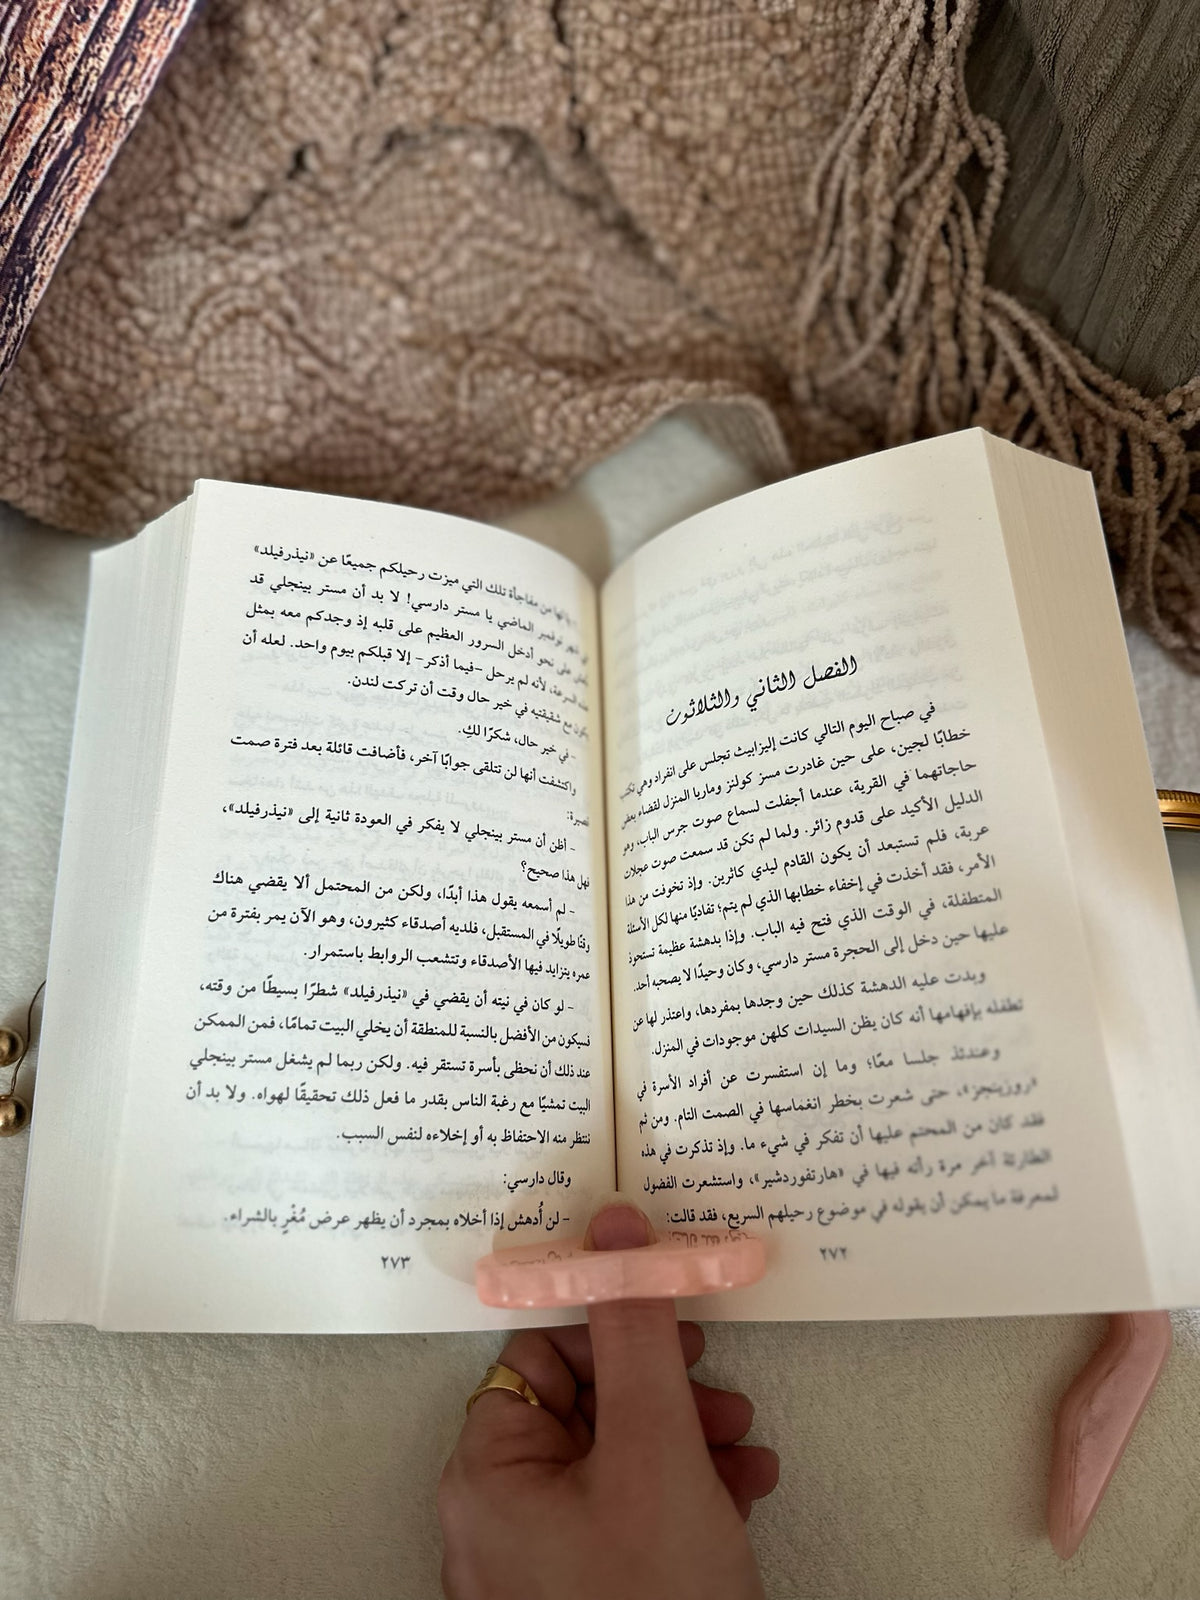 الفصل الثاني والثلاثون
في صباح اليوم التالي كانت إليزابيث تجلس على انفراد وهي تكتب
خطابًا لجين، على حين غادرت مسز كولنز وماريا المنزل لقضاء بعض
حاجاتهما في القرية، عندما أجفلت لسماع صوت جرس الباب، وهو
الدليل الأكيد على قدوم زائر. ولما لم تكن قد سمعت صوت عجلات
عربة، فلم تستبعد أن يكون القادم ليدي كاثرين. وإذ تخوفت من هذا
الأمر، فقد أخذت في إخفاء خطابها الذي لم يتم؛ تفاديًا منها لكل الأسئلة
المتطفلة، في الوقت الذي فتح فيه الباب. وإذا بدهشة عظيمة تستحوذ
عليها حين دخل إلى الحجرة مستر دارسي، وكان وحيدًا لا يصحبه أحد.
وبدت عليه الدهشة كذلك حين وجدها بمفردها، واعتذر لها عن
تطفله بإفهامها أنه كان يظن السيدات كلهن موجودات في المنزل.
وعندئذ جلسا معًا؛ وما إن استفسرت عن أفراد الأسرة في
«روزينجز»، حتى شعرت بخطر انغماسها في الصمت التام. ومن ثم
فقد كان من المحتم عليها أن تفكر في شيء ما. وإذ تذكرت في هذه
الطارئة آخر مرة رأته فيها في «هارتفوردشير»، واستشعرت الفضول
لمعرفة ما يمكن أن يقوله في موضوع رحيلهم السريع، فقد قالت:
٢٧٢
من مفاجأة تلك التي ميزت رحيلكم جميعًا عن «نيذرفيلد»
شهر نوفمبر الماضي يا مستر دارسي! لا بد أن مستر بينجلي قد
على نحو أدخل السرور العظيم على قلبه إذ وجدكم معه بمثل
هذه السرعة، لأنه لم يرحل -فيما أذكر- إلا قبلكم بيوم واحد. لعله أن
يكون مع شقيقتيه في خير حال وقت أن تركت لندن.
- في خير حال، شكرًا لكِ.
واكتشفت أنها لن تتلقى جوابًا آخر، فأضافت قائلة بعد فترة صمت
قصيرة:
- أظن أن مستر بينجلي لا يفكر في العودة ثانية إلى «نيذرفيلد»،
فهل هذا صحيح؟
- لم أسمعه يقول هذا أبدًا، ولكن من المحتمل ألا يقضي هناك
وقتًا طويلًا في المستقبل، فلديه أصدقاء كثيرون، وهو الآن يمر بفترة من
عمره يتزايد فيها الأصدقاء وتتشعب الروابط باستمرار.
- لو كان في نيته أن يقضي في «نيذرفيلد» شطرًا بسيطًا من وقته،
فسيكون من الأفضل بالنسبة للمنطقة أن يخلي البيت تمامًا، فمن الممكن
عند ذلك أن نحظى بأسرة تستقر فيه. ولكن ربما لم يشغل مستر بينجلي
البيت تمشيًا مع رغبة الناس بقدر ما فعل ذلك تحقيقًا لهواه. ولا بد أن
ننتظر منه الاحتفاظ به أو إخلاءه لنفس السبب.
وقال دارسي:
- لن أُدهش إذا أخلاه بمجرد أن يظهر عرض مُغْرٍ بالشراء.
٢٧٣